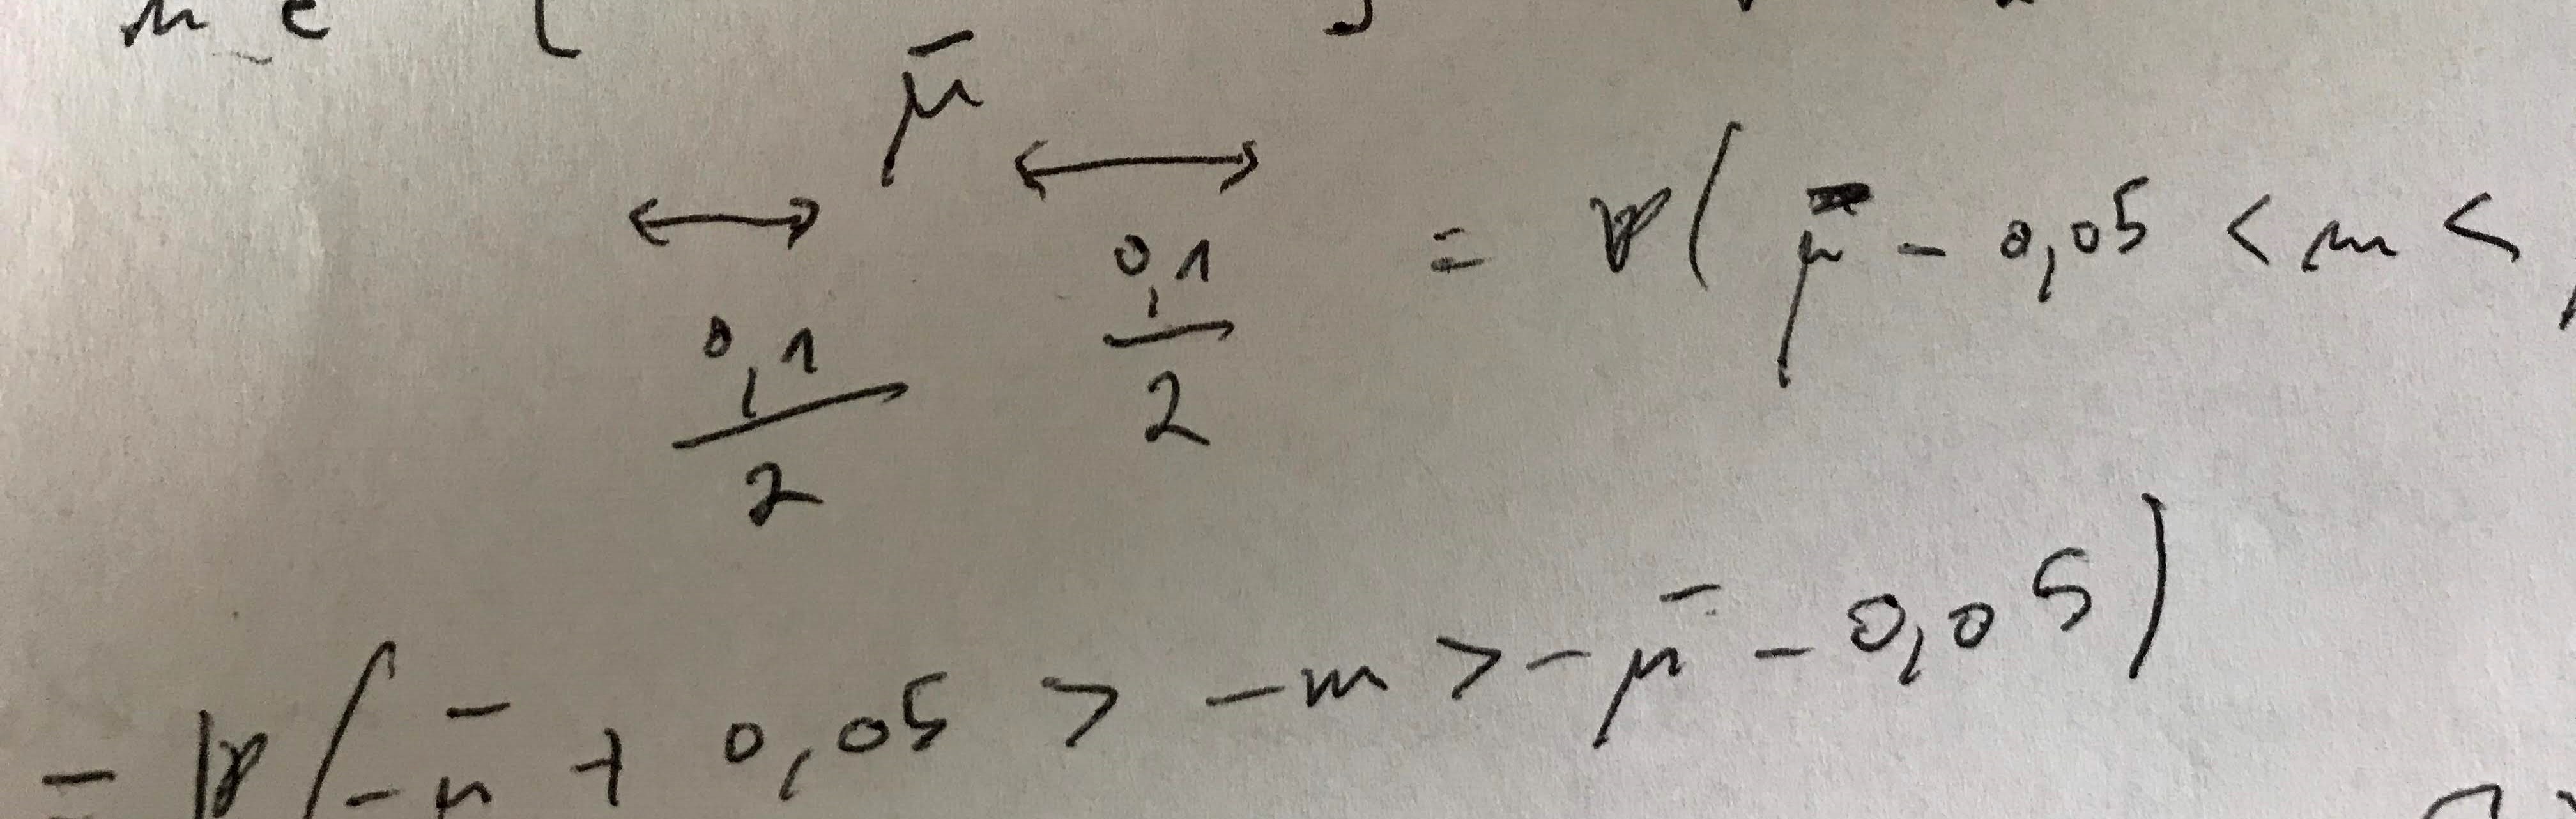 μ̄
↔ ↔
0,1/2 0,1/2 = ℙ( μ̄ - 0,05 < m <
= ℙ( -μ̄ + 0,05 > -m > -μ̄ - 0,05 )